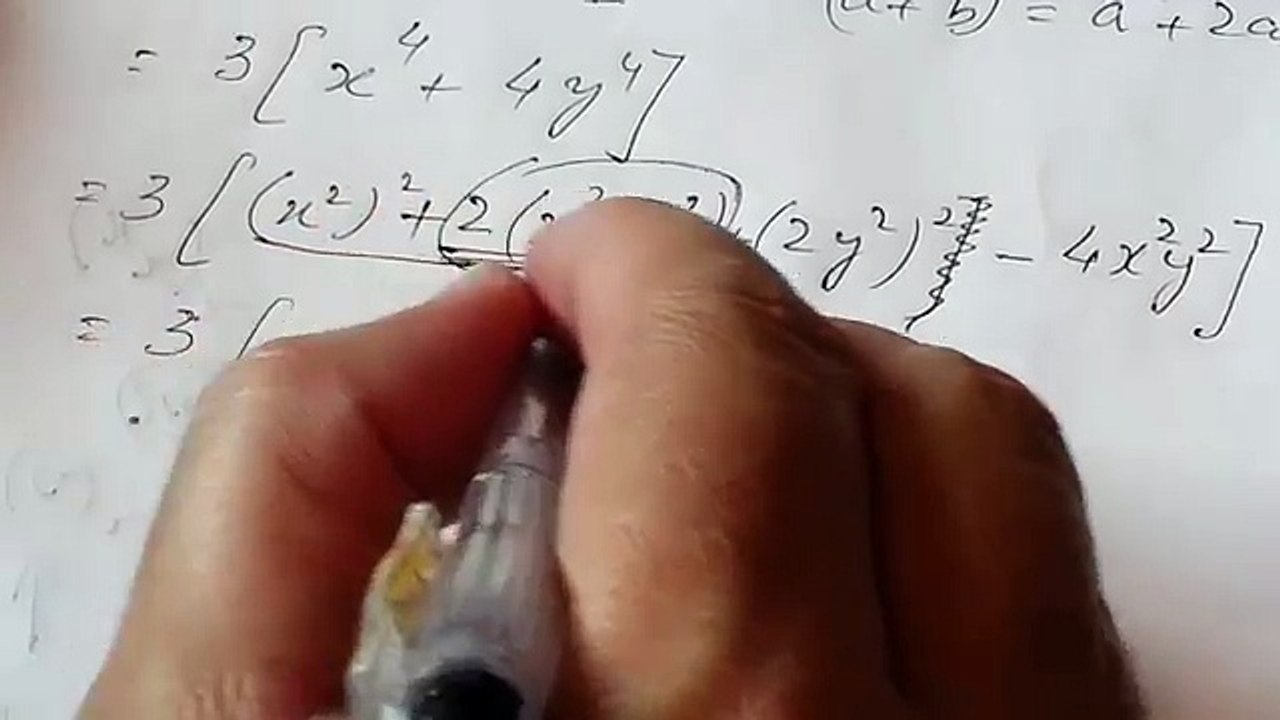 (a + b) = a + 2a
= 3 [ x⁴ + 4y⁴ ]
= 3 [ (x²)² + 2 ( (2y²)² - 4x²y² ]
= 3 [